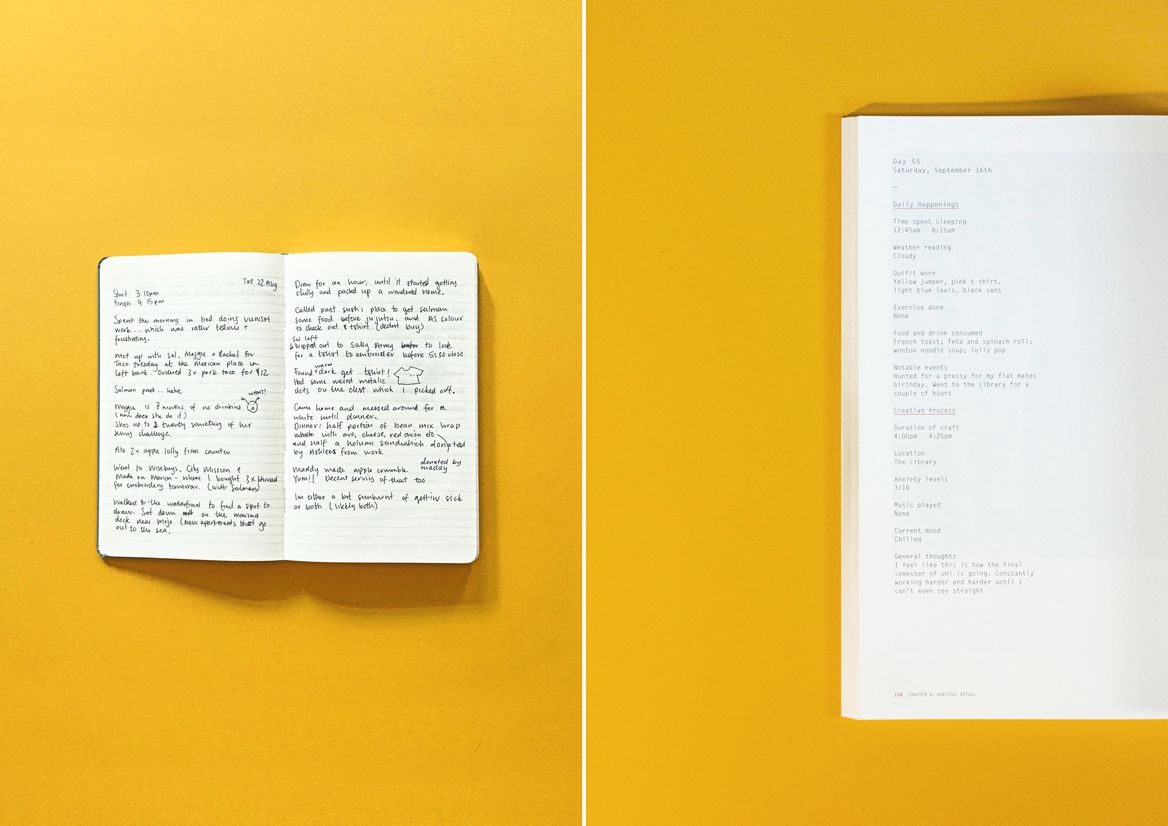 Tue 22 Aug
Start: 3:10pm
Finish: 4:15pm
Spent the morning in bed doing
work... which was rather tedious +
frustrating.
Met up with Sal, Maggie + Rachel for
Taco tuesday at the Mexican place in
left bank. Ordered 3x pork taco for $12
Salmon paid.. hehe
woah!
Maggie is 7 months of no drinking
(how does she do it)
Shes up to 2 twenty something of her
sunny challenge.
Also 2x apple lolly from counter
Went to Wisebuys, City Mission &
Made on Marion - where I bought 3x thread
for embroidery tomorrow. (with Salman)
Walked to the waterfront to find a spot to
draw. Sat down on the moving
dock near mojo (new apartments that go
out to the sea.
Drew for an hour, until it started getting
chilly and packed up a wandered home.
Called past sushi place to get salman
some food before jujutsu, and AS colour
to check out a tshirt (dednt buy)
Sal left
& wopped out to Sally Army to look
for a tshirt to embroider before 5:30 close
warm
Found dark get tshirt!
Had some weird metalic
dots on the chest which I picked off.
Came home and messed around for a
white until dinner.
Dinner: half portion of bean mix wrap
with avo, cheese, red onion etc
and half a haloumi sandwhich donated
by Ashlees from work
donated by
maddy
Maddy made apple crumble
Yum!! Decent serving of that too
Im either a bit sunburnt of gettin sick
or both (likely both)
Day 55
Saturday, September 16th
—
Daily Happenings
Time spent sleeping
12:45am - 8:15am
Weather reading
Cloudy
Outfit worn
Yellow jumper, pink t-shirt,
light blue levis, black vans
Exercise done
None
Food and drink consumed
French toast; feta and spinach roll;
wonton noodle soup; lolly pop
Notable events
Hunted for a pressy for my flat mates
birthday. Went to the Library for a
couple of hours
Creative Process
Duration of craft
4:00pm - 4:25pm
Location
The Library
Anxiety levels
3/10
Music played
None
Current mood
Chilled
General thoughts
I feel like this is how the final
semester of uni is going. Constantly
working harder and harder until I
can't even see straight
138 CHAPTER 4: HABITUAL RITUAL